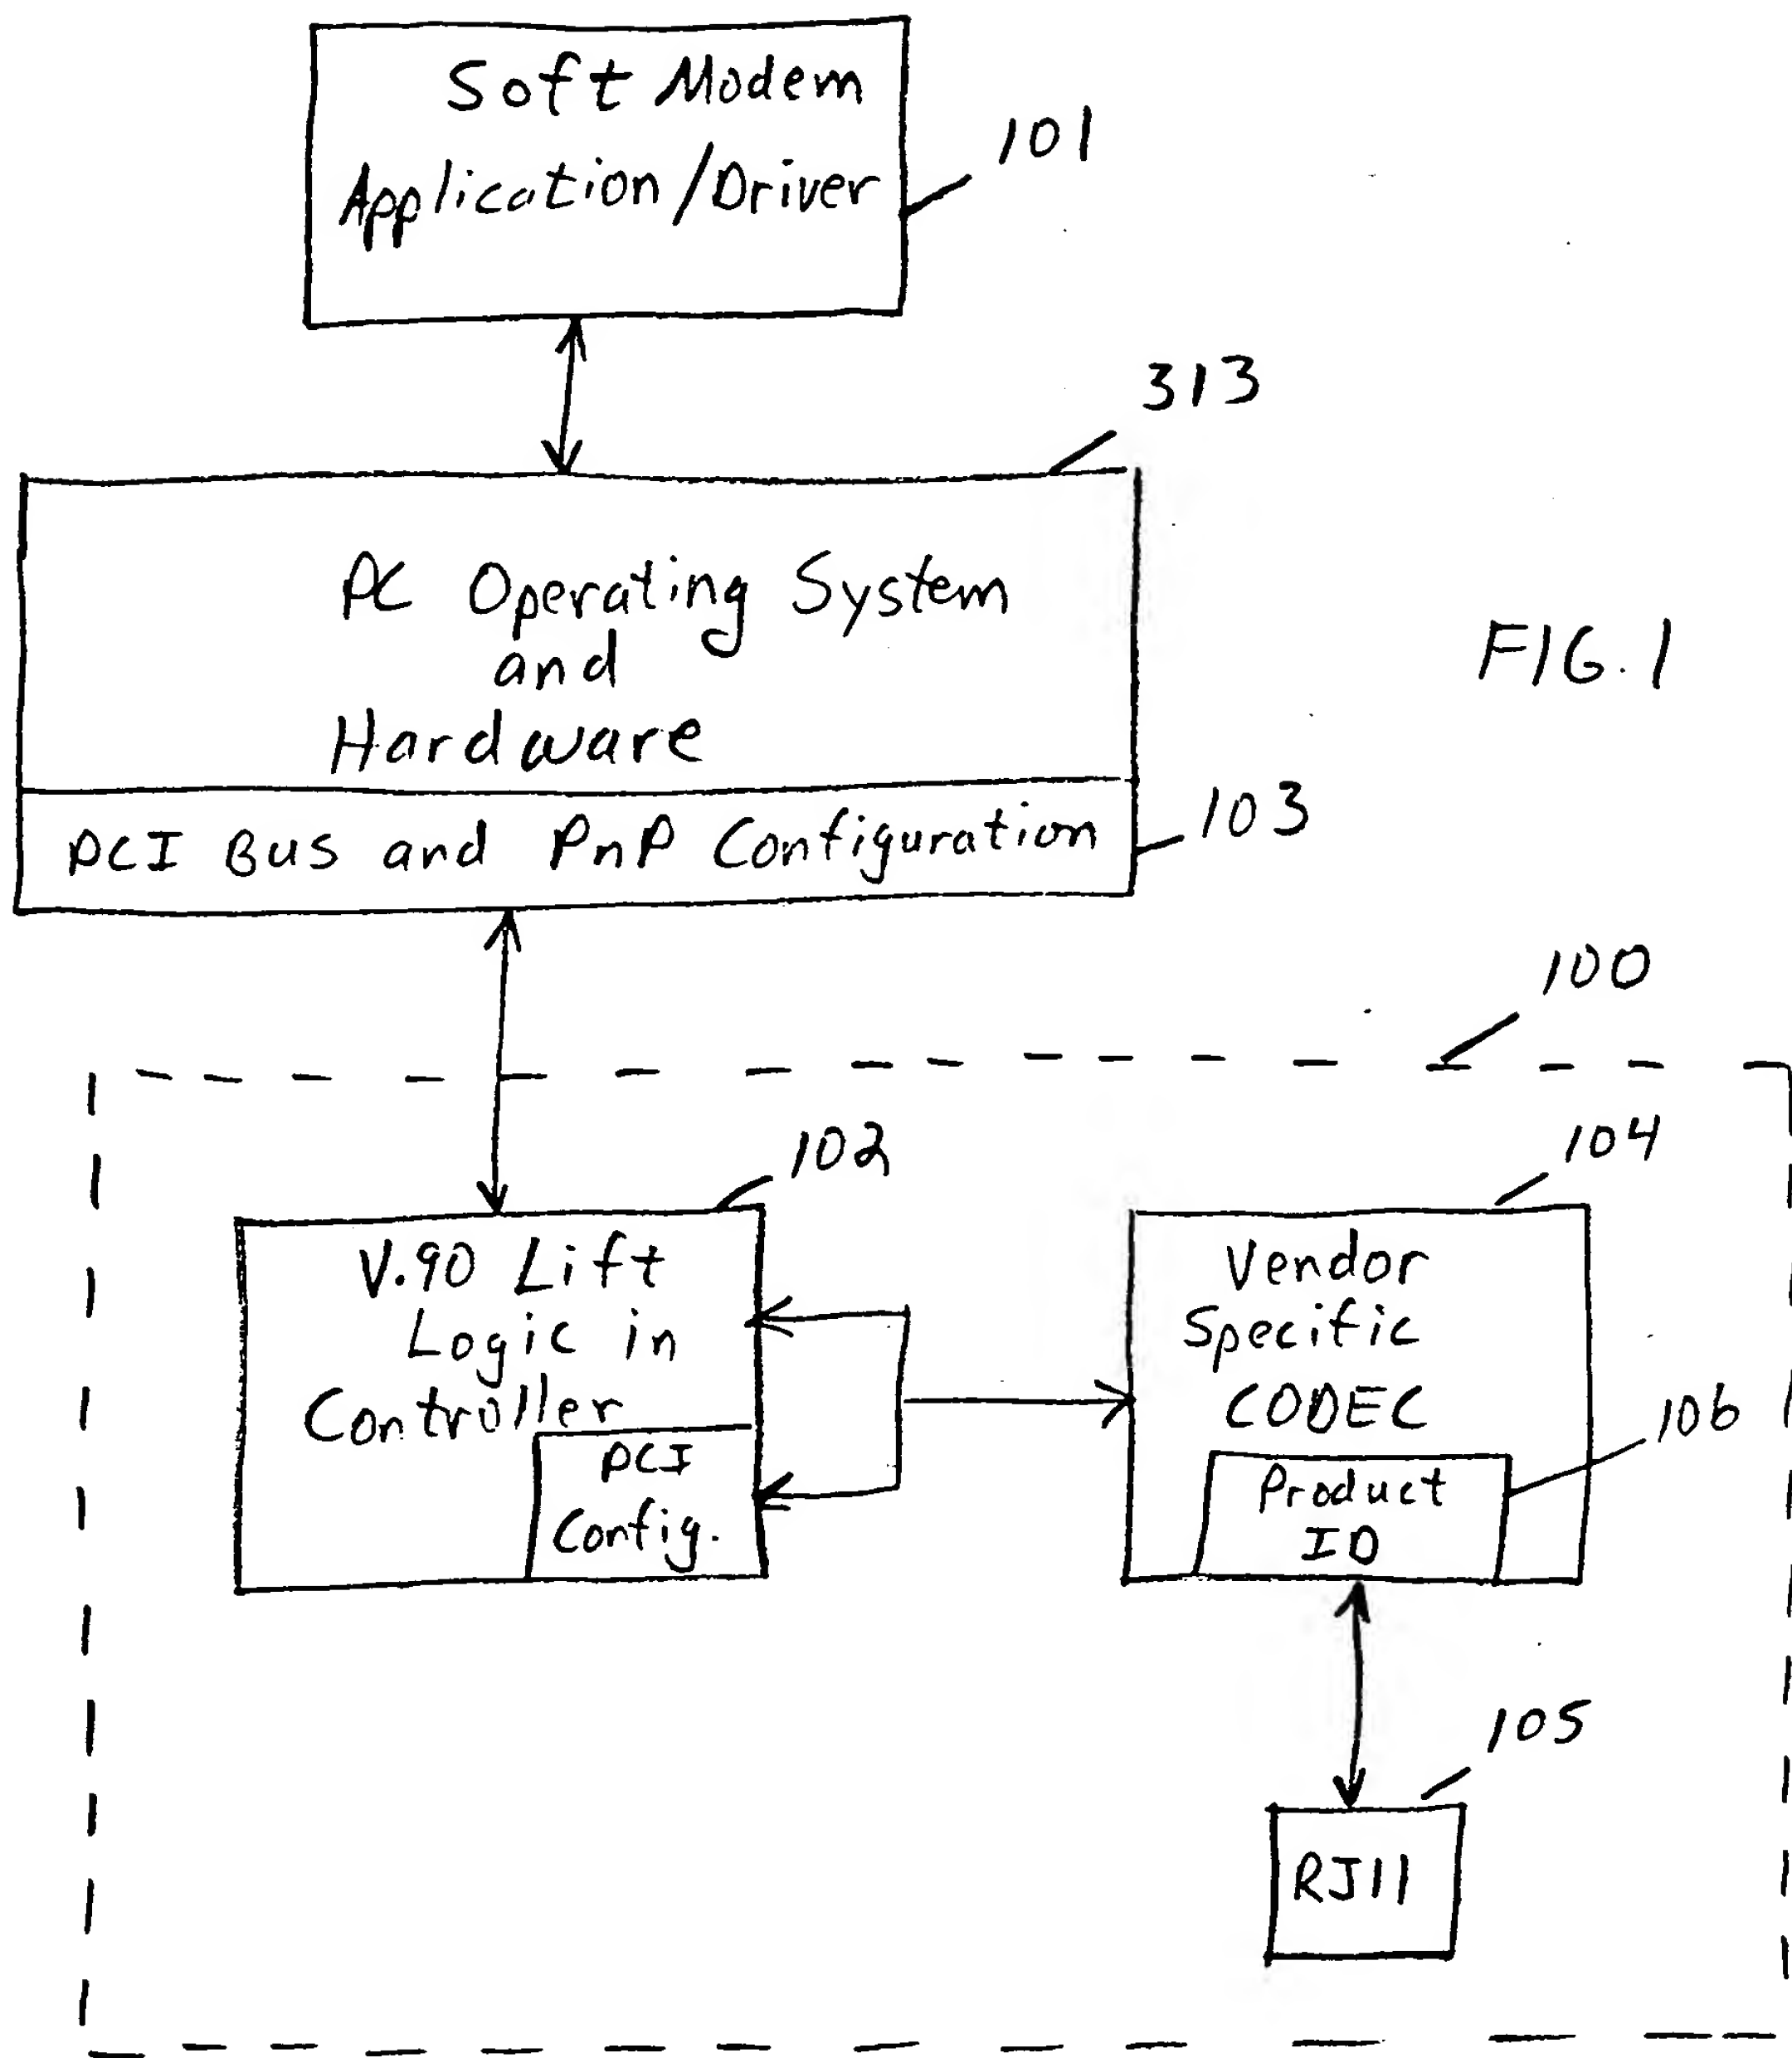 Soft Modem
Application/Driver
101
313
PC Operating System
and
Hardware
FIG. 1
PCI Bus and PnP Configuration
103
100
102
104
V.90 Lift
Logic in
Controller
PCI
Config.
Vendor
Specific
CODEC
106
Product
ID
105
RJ11